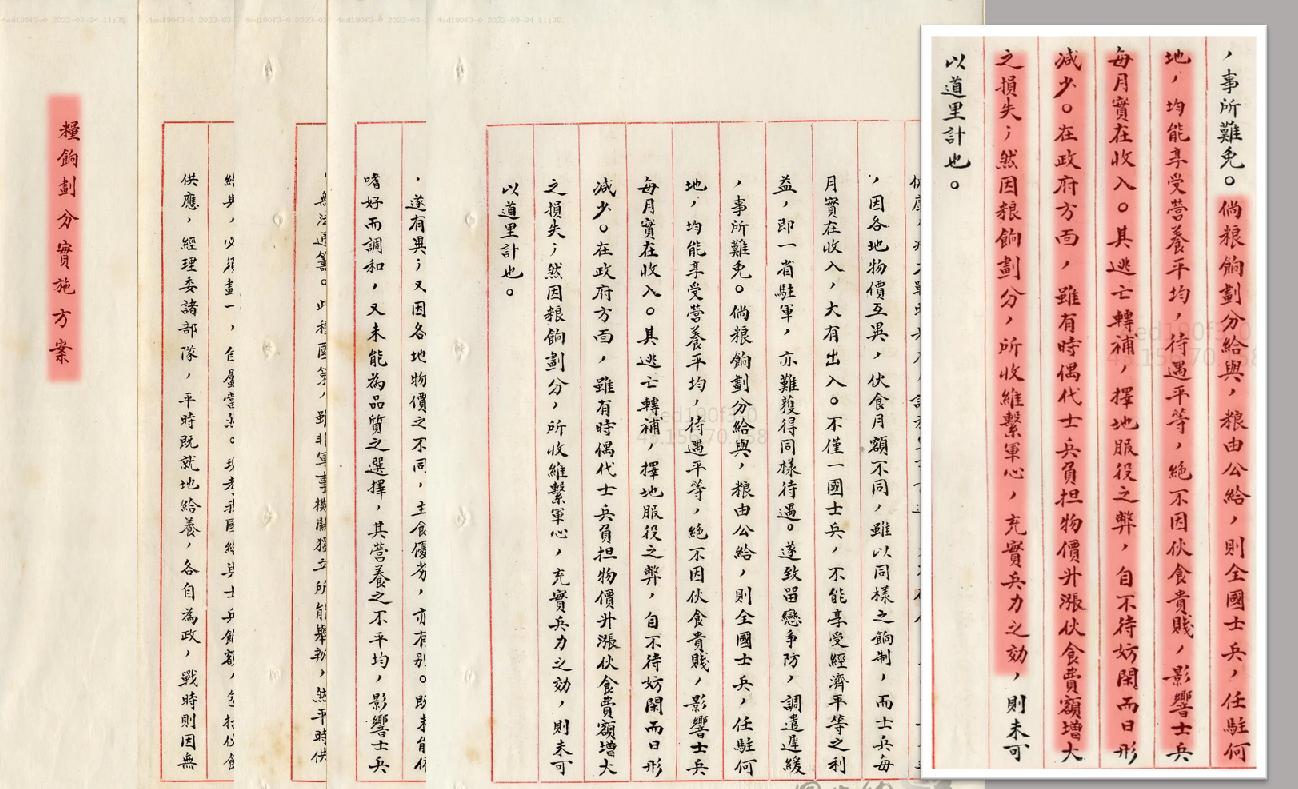 ，事所難免。倘粮餉劃分給與，粮由公給，則全國士兵，任駐何
地，均能享受營養平均，待遇平等，絕不因伙食貴賤，影響士兵
每月實在收入。其逃亡轉補，擇地服役之弊，自不待妨閑而日形
減少。在政府方面，雖有時偶代士兵負担物價升漲伙食費額增大
之損失；然因粮餉劃分，所收維繫軍心，充實兵力之効，則未可
以道里計也。
，因各地物價互異，伙食月額不同，雖以同樣之餉制，而士兵每
月實在收入，大有出入。不僅一國士兵，不能享受經濟平等之利
益，即一省駐軍，亦難獲得同樣待遇。遂致留戀争防，調遣遲緩
，事所難免。倘粮餉劃分給與，粮由公給，則全國士兵，任駐何
地，均能享受營養平均，待遇平等，絕不因伙食貴賤，影響士兵
每月實在收入。其逃亡轉補，擇地服役之弊，自不待妨閑而日形
減少。在政府方面，雖有時偶代士兵負担物價升漲伙食費額增大
之損失；然因粮餉劃分，所收維繫軍心，充實兵力之効，則未可
以道里計也。
，遂有異；又因各地物價之不同，主食優劣，亦有别。既未能依
嗜好而調和，又未能為品質之選擇，其營養之不平均，影響士兵
供應，經理委諸部隊，平時既就地給養，各自為政，戰時則因無
糧餉劃分實施方案